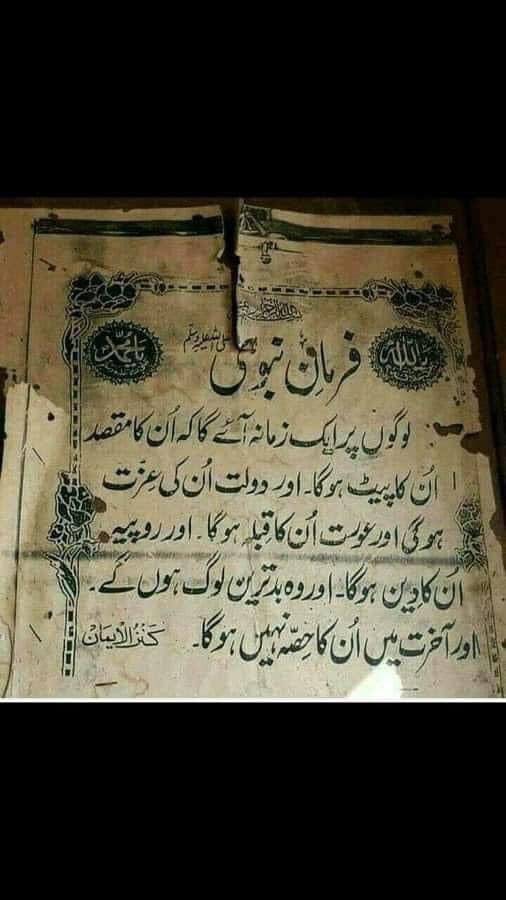 یا اللہ
یا محمدؐ
فرمانِ نبوی صلی اللہ علیہ وسلم
لوگوں پر ایک زمانہ آئے گا کہ اُن کا مقصد
اُن کا پیٹ ہوگا۔ اور دولت اُن کی عِزّت
ہوگی اور عورت اُن کا قبلہ ہوگا۔ اور روپیہ
اُن کا دِین ہوگا۔ اور وہ بدترین لوگ ہوں گے۔
اور آخرت میں اُن کا حِصّہ نہیں ہوگا۔ کَنزُ الْاِیمَان